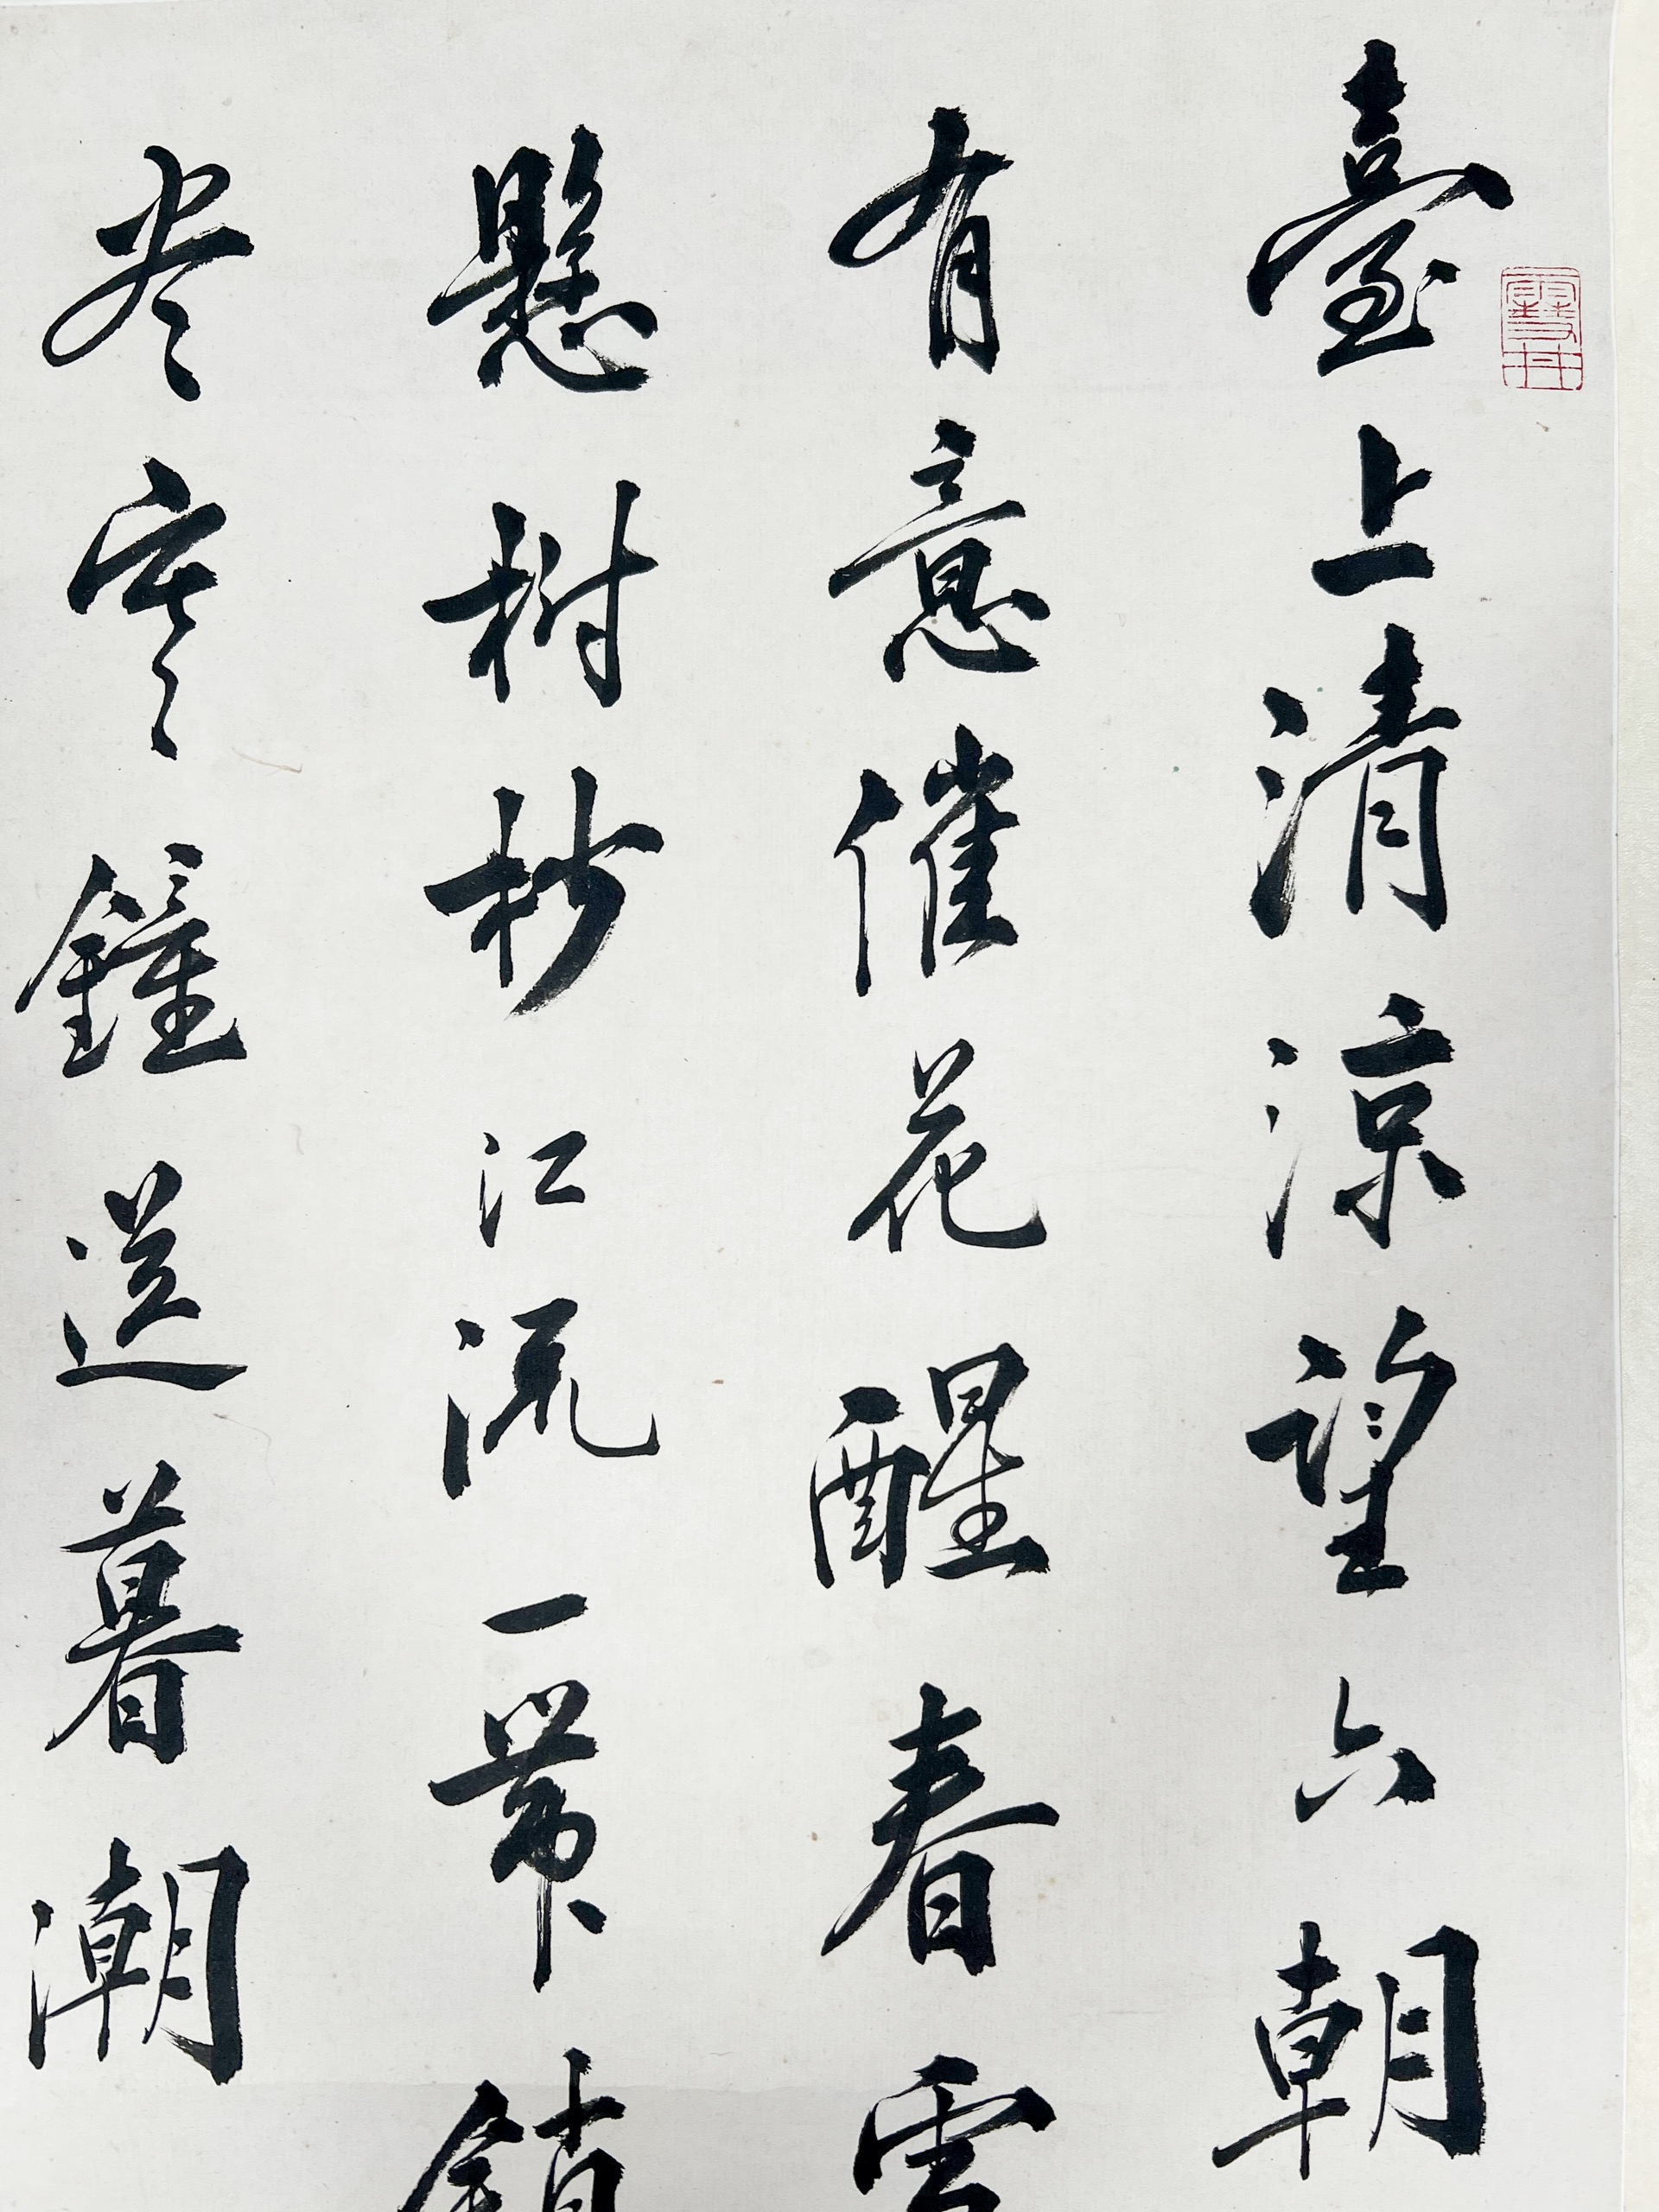 臺上清涼望六朝
有意催花醒春
懸樹杪江流一帶
尽寒鐘送暮潮